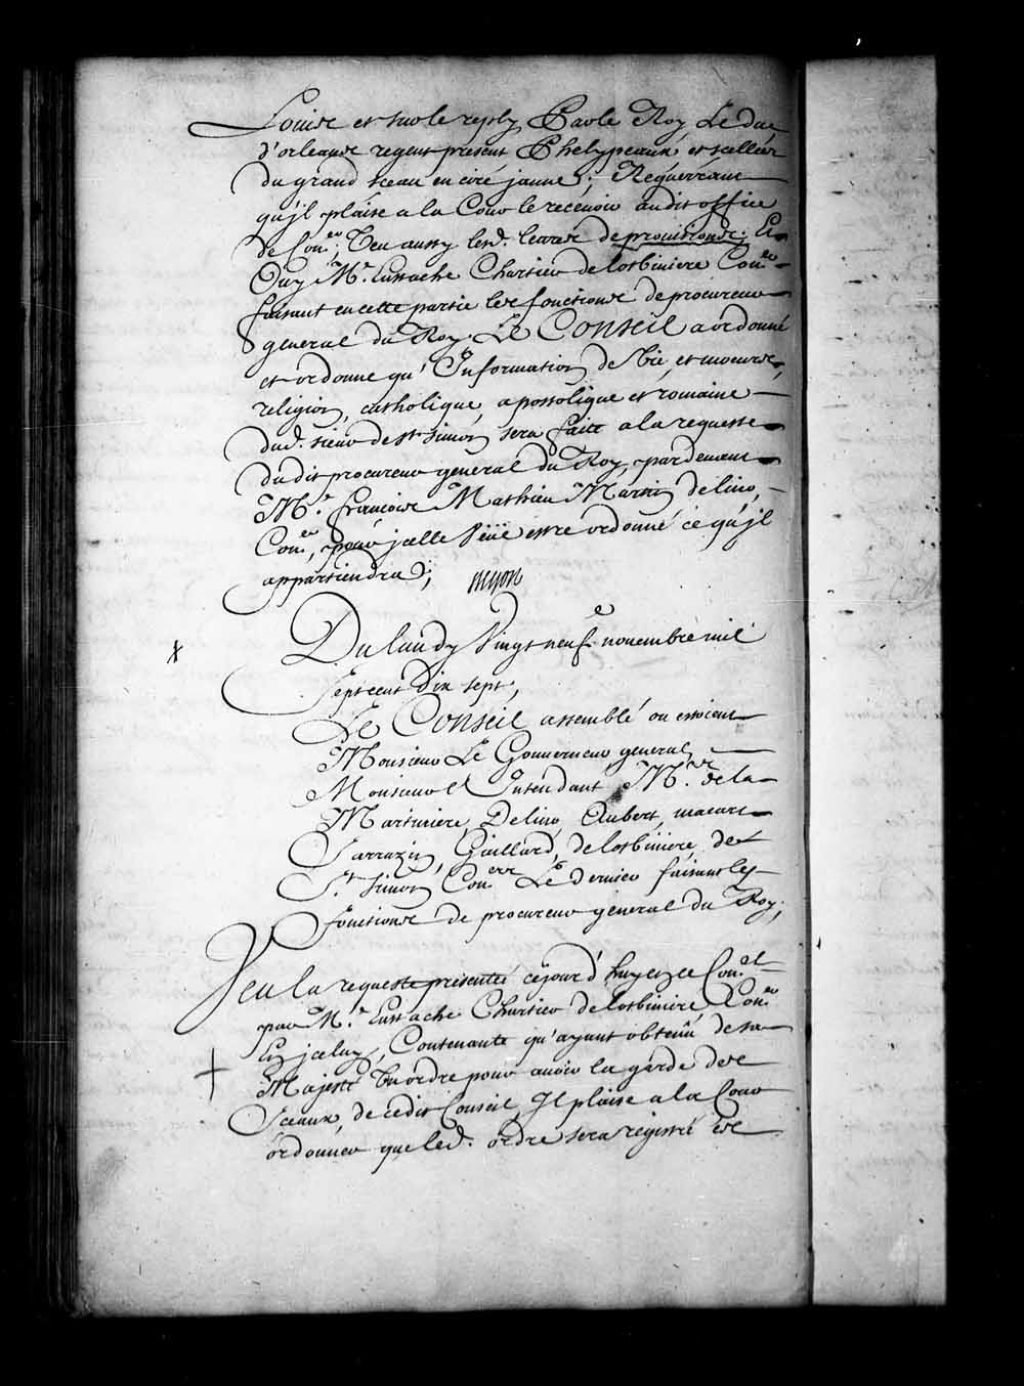 Louis et sur le reply Par le Roy Le duc
d'orleans regent present Phelypeaux et scellées
du grand sceau en cire jaune; Requerrant
qu'jl plaise a la Cour le recevoir audit office
de Con.er; Veu aussy lesd. lettres de provisions; Et
Ouy M.e Eustache Chartier de Lotbiniere Con.er
faisant en cette partie les fonctions de procureur
general du Roy Le Conseil a ordonné
et ordonne qu'Information de Vie, et moeurs,
religion, catholique, apostolique et romaine
dud. sieur de St Simon sera faite a la requeste
dudit procureur general du Roy, pardevant
M.e françois Mathieu Martin delino,
Con.er, pour jcelle Veüe estre ordonné ce qu'jl
appartiendra;
Du lundy Vingt neuf.e novembre mil
sept cent dix sept,
Le Conseil assemblé ou estoient
Monsieur Le Gouverneur general
Monsieur L'Intendant M.es de la
Martiniere, Delino, Aubert, macart
Sarrazin, Gaillard, de lotbiniere, de
S.t Simon Con.ers Le dernier faisant les
fonctions de procureur general du Roy;
Veu la requeste presentée cejourd'huy en ce Con.el
par M.e Eustache Chartier de lotbiniere, Con.er
En jceluy, Contenante qu'ayant obtenu de sa
Majesté Un ordre pour avoir la garde des
Sceaux, de cedit Conseil, Il plaise a la Cour
ordonner que led. ordre sera registré es